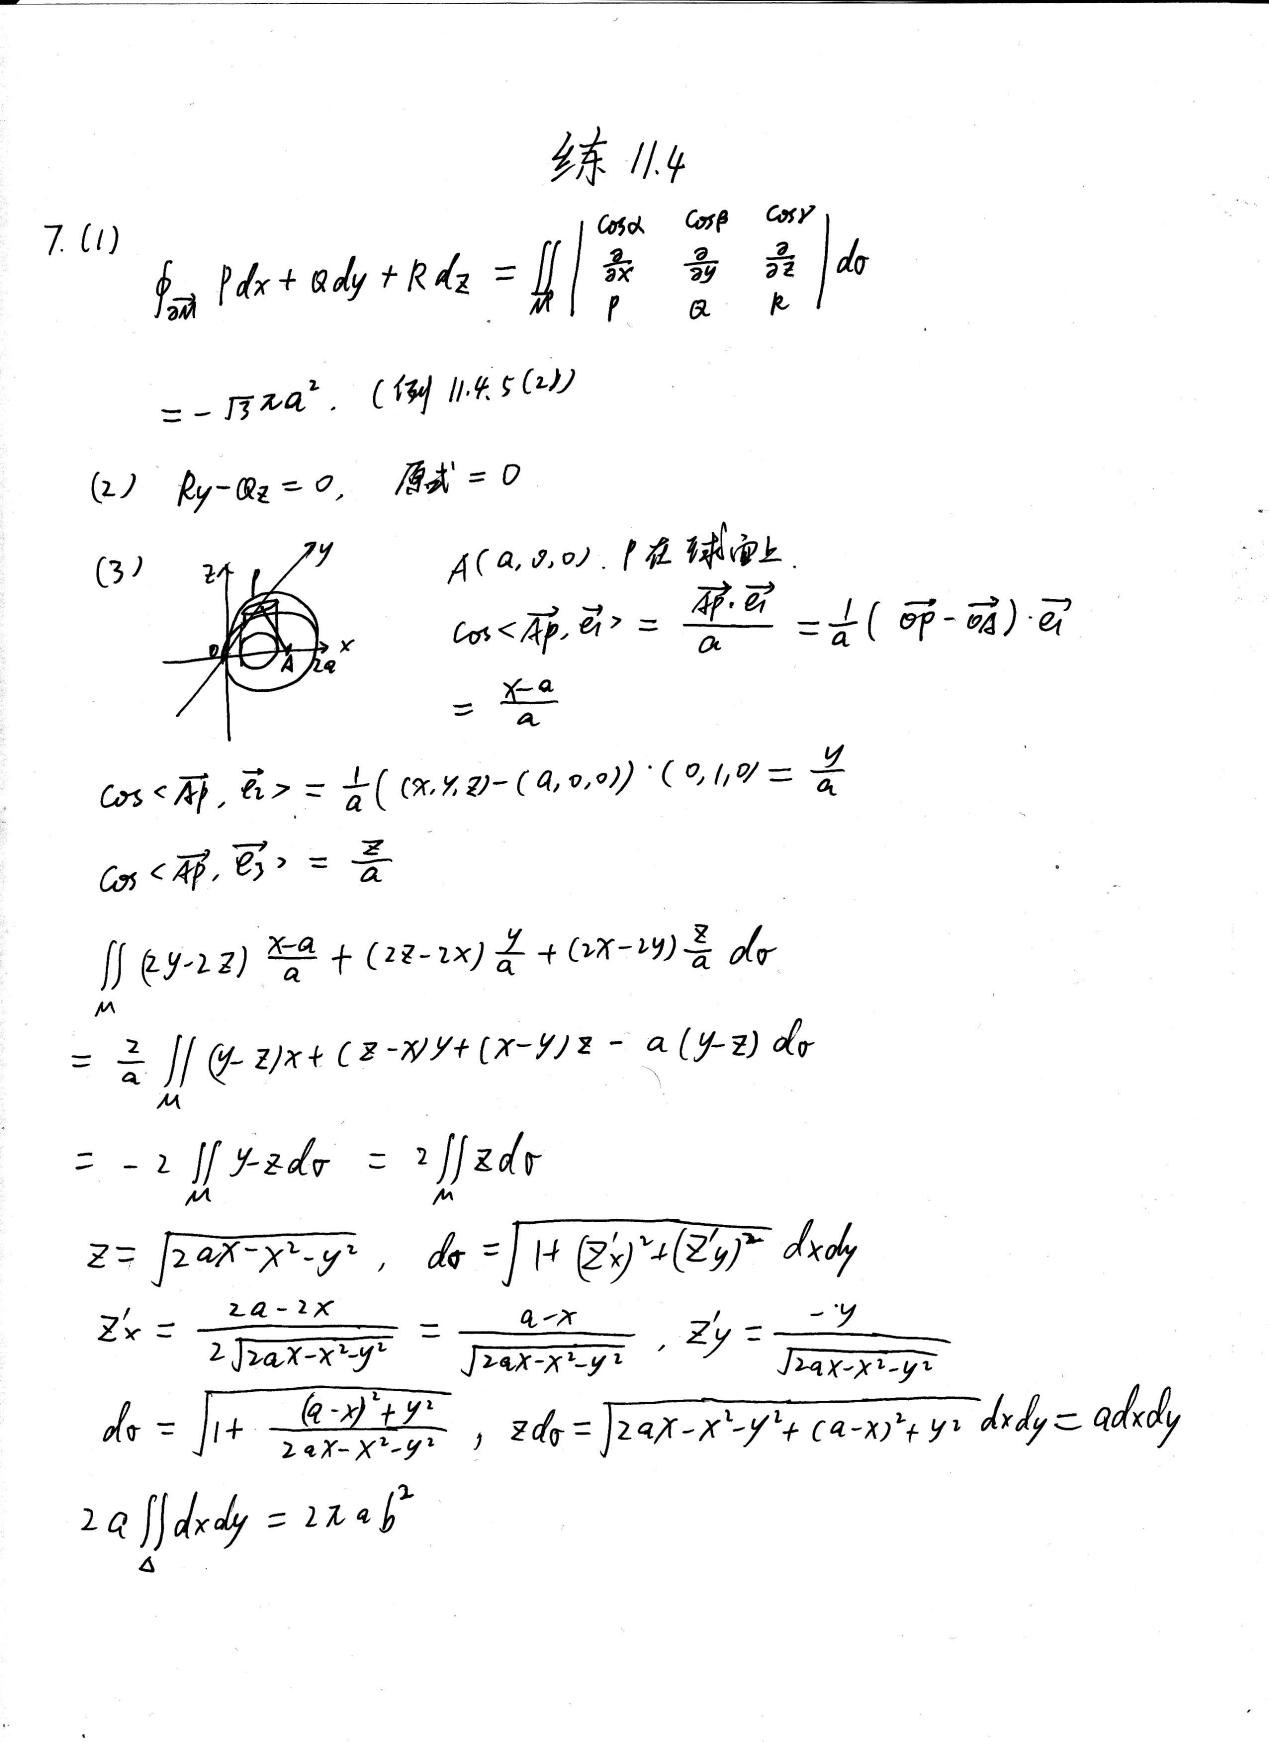 练 11.4
7. (1)
∮_{∂M⃗} Pdx + Qdy + Rdz = ∬_M | cosα cosβ cosγ ; ∂/∂x ∂/∂y ∂/∂z ; P Q R | dσ
= -√3 πa². (例 11.4.5(2))
(2) Ry-Qz = 0, 原式 = 0
(3) A(a,0,0). P在球面上.
z y P O A 2a x
cos<AP⃗, e₁⃗> = (AP⃗·e₁⃗)/a = 1/a (OP⃗ - OA⃗)·e₁⃗
= (x-a)/a
cos<AP⃗, e₂⃗> = 1/a((x,y,z)-(a,0,0))·(0,1,0) = y/a
cos<AP⃗, e₃⃗> = z/a
∬_M (2y-2z) (x-a)/a + (2z-2x) y/a + (2x-2y) z/a dσ
= 2/a ∬_M (y-z)x + (z-x)y + (x-y)z - a(y-z) dσ
= -2 ∬_M y-z dσ = 2∬_M z dσ
z = √(2ax-x²-y²), dσ = √(1+(z'x)²+(z'y)²) dxdy
z'x = (2a-2x)/(2√(2ax-x²-y²)) = (a-x)/√(2ax-x²-y²), z'y = -y/√(2ax-x²-y²)
dσ = √(1+ ((a-x)²+y²)/(2ax-x²-y²)), zdσ = √(2ax-x²-y²+(a-x)²+y²) dxdy = adxdy
2a∬_Δ dxdy = 2πab²